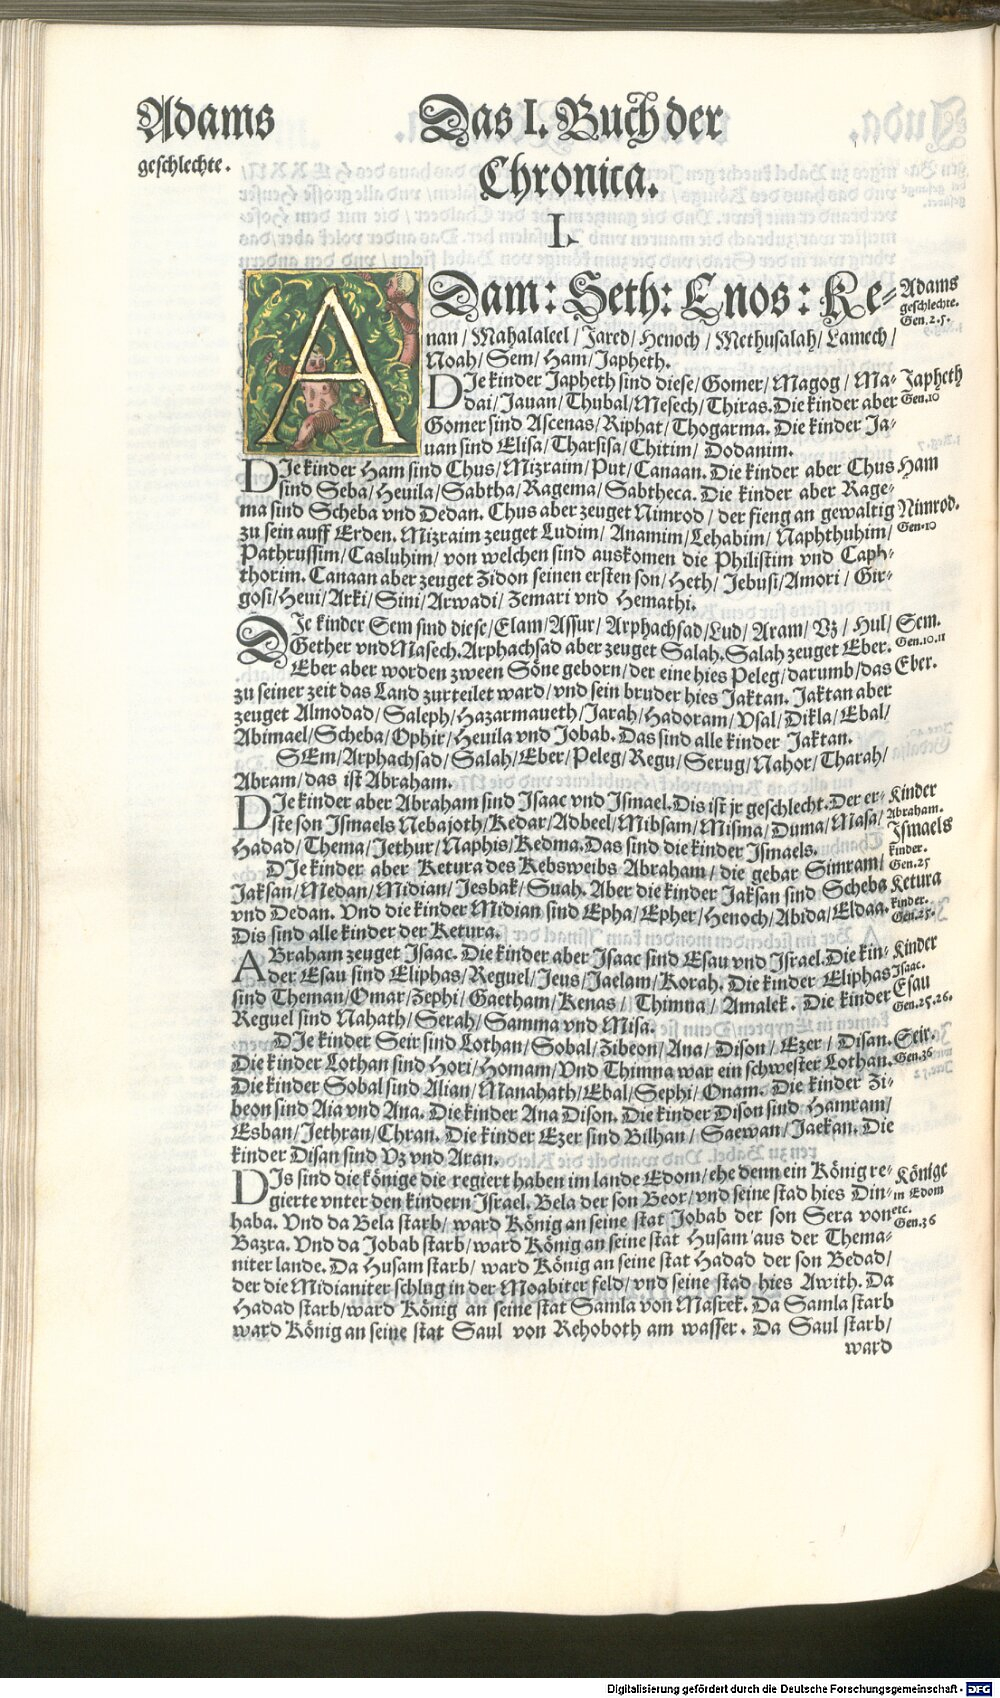 Adams
geschlechte.
Das I. Buch der
Chronica.
I.
ADam: Seth: Enos: Ke-
nan/ Mahalaleel/ Jared/ Henoch/ Methusalah/ Lamech/
Noah/ Sem/ Ham/ Japheth.
Adams
geschlechte.
Gen.2.5.
DIe kinder Japheth sind diese/ Gomer/ Magog/ Ma-
dai/ Jauan/ Thubal/ Mesech/ Thiras. Die kinder aber
Gomer sind Ascenas/ Riphat/ Thogarma. Die kinder Ja-
uan sind Elisa/ Tharsisa/ Chitim/ Dodanim.
Japheth
Gen.10
DIe kinder Ham sind Chus/ Mizraim/ Put/ Canaan. Die kinder aber Chus
sind Seba/ Heuila/ Sabtha/ Ragema/ Sabtheca. Die kinder aber Rage-
ma sind Scheba vnd Dedan. Chus aber zeuget Nimrod/ der fieng an gewaltig
zu sein auff Erden. Mizraim zeuget Ludim/ Anamim/ Lehabim/ Naphthuhim/
Pathrussim/ Casluhim/ von welchen sind auskomen die Philistim vnd Caph-
thorim. Canaan aber zeuget Zidon seinen ersten son/ Heth/ Jebusi/ Amori/ Gir-
gosi/ Heui/ Arki/ Sini/ Arwadi/ Zemari vnd Hemathi.
Ham
Nimrod.
Gen.10
DIe kinder Sem sind diese/ Elam/ Assur/ Arphachsad/ Lud/ Aram/ Vz/ Hul/
Gether vnd Masech. Arphachsad aber zeuget Salah. Salah zeuget Eber.
Eber aber worden zween Söne geborn/ der eine hies Peleg/ darumb/ das
zu seiner zeit das Land zurteilet ward/ vnd sein bruder hies Jaktan. Jaktan aber
zeuget Almodad/ Saleph/ Hazarmaueth/ Jarah/ Hadoram/ Vsal/ Dikla/ Ebal/
Abimael/ Scheba/ Ophir/ Heuila vnd Jobab. Das sind alle kinder Jaktan.
SEm/ Arphachsad/ Salah/ Eber/ Peleg/ Regu/ Serug/ Nahor/ Tharah/
Abram/ das ist Abraham.
Sem.
Gen.10.11
Eber.
DIe kinder aber Abraham sind Isaac vnd Ismael. Dis ist jr geschlecht. Der er-
ste son Ismaels Nebajoth/ Kedar/ Adbeel/ Mibsam/ Misma/ Duma/ Masa/
Hadad/ Thema/ Jethur/ Naphis/ Kedma. Das sind die kinder Ismaels.
DIe kinder aber Ketura des Kebsweibs Abraham/ die gebar Simram/
Jaksan/ Medan/ Midian/ Jesbak/ Suah. Aber die kinder Jaksan sind Scheba
vnd Dedan. Vnd die kinder Midian sind Epha/ Epher/ Henoch/ Abida/ Eldaa.
Dis sind alle kinder der Ketura.
Kinder
Abraham.
Ismaels
kinder.
Gen.25
Ketura
kinder.
Gen.25.
ABraham zeuget Isaac. Die kinder aber Isaac sind Esau vnd Israel. Die kin-
der Esau sind Eliphas/ Reguel/ Jeus/ Jaelam/ Korah. Die kinder Eliphas
sind Theman/ Omar/ Zephi/ Gaetham/ Kenas/ Thimna/ Amalek. Die kinder
Reguel sind Nahath/ Serah/ Samma vnd Misa.
Kinder
Isaac.
Esau
Gen.25.26.
DIe kinder Seir sind Lothan/ Sobal/ Zibeon/ Ana/ Dison/ Ezer/ Disan.
Die kinder Lothan sind Hori/ Homam/ Vnd Thimna war ein schwester Lothan.
Die kinder Sobal sind Alian/ Manahath/ Ebal/ Sephi/ Onam. Die kinder Zi-
beon sind Aia vnd Ana. Die kinder Ana Dison. Die kinder Dison sind Hamram/
Esban/ Jethran/ Chran. Die kinder Ezer sind Bilhan/ Saewan/ Jaekan. Die
kinder Disan sind Vz vnd Aran.
Seir.
Gen.36
DIs sind die könige die regiert haben im lande Edom/ ehe denn ein König re-
gierte vnter den kindern Israel. Bela der son Beor/ vnd seine stad hies Din-
haba. Vnd da Bela starb/ ward König an seine stat Jobab der son Sera von
Bazra. Vnd da Jobab starb/ ward König an seine stat Husam aus der Thema-
niter lande. Da Husam starb/ ward König an seine stat Hadad der son Bedad/
der die Midianiter schlug in der Moabiter feld/ vnd seine stad hies Awith. Da
Hadad starb/ ward König an seine stat Samla von Masrek. Da Samla starb
ward König an seine stat Saul von Rehoboth am wasser. Da Saul starb/
ward
Könige
in Edom
etc.
Gen.36
Digitalisierung gefördert durch die Deutsche Forschungsgemeinschaft - DFG